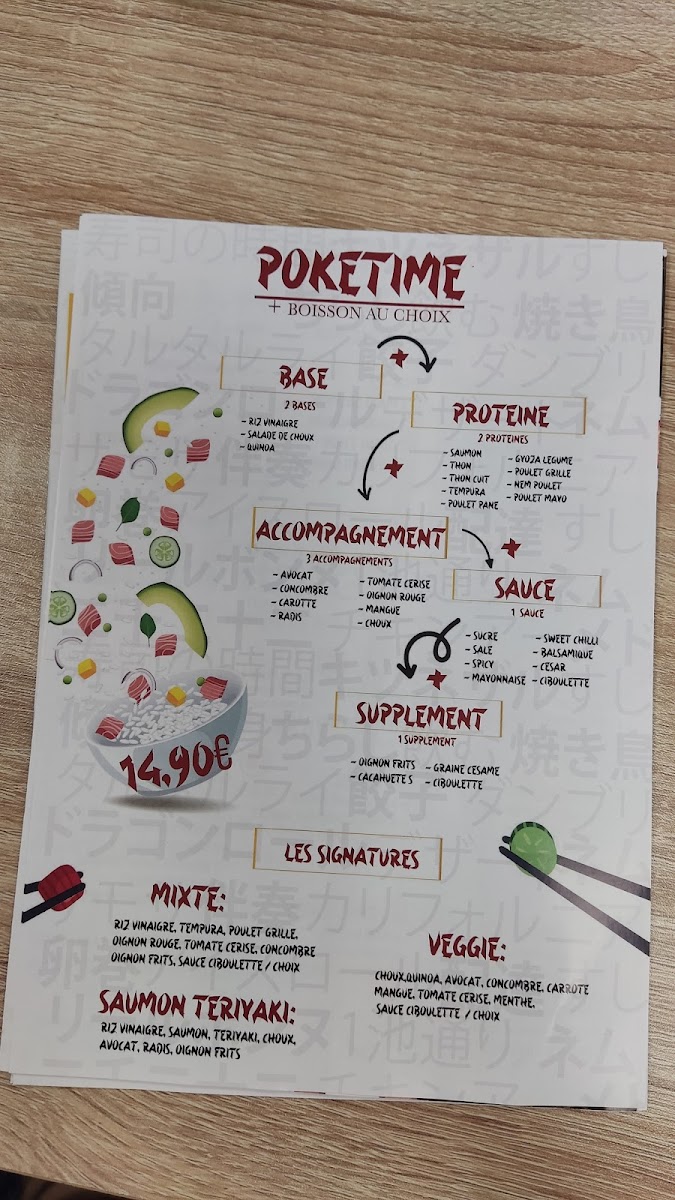 POKETIME
+ BOISSON AU CHOIX
BASE
2 BASES
- RIZ VINAIGRE
- SALADE DE CHOUX
- QUINOA
PROTEINE
2 PROTEINES
- SAUMON
- THON
- THON CUIT
- TEMPURA
- POULET PANE
- GYOZA LEGUME
- POULET GRILLE
- NEM POULET
- POULET MAYO
ACCOMPAGNEMENT
3 ACCOMPAGNEMENTS
- AVOCAT
- CONCOMBRE
- CAROTTE
- RADIS
- TOMATE CERISE
- OIGNON ROUGE
- MANGUE
- CHOUX
SAUCE
1 SAUCE
- SUCRE
- SALE
- SPICY
- MAYONNAISE
- SWEET CHILLI
- BALSAMIQUE
- CESAR
- CIBOULETTE
SUPPLEMENT
1 SUPPLEMENT
- OIGNON FRITS
- CACAHUETES
- GRAINE CESAME
- CIBOULETTE
14,90€
LES SIGNATURES
MIXTE:
RIZ VINAIGRE, TEMPURA, POULET GRILLE,
OIGNON ROUGE, TOMATE CERISE, CONCOMBRE
OIGNON FRITS, SAUCE CIBOULETTE / CHOIX
SAUMON TERIYAKI:
RIZ VINAIGRE, SAUMON, TERIYAKI, CHOUX,
AVOCAT, RADIS, OIGNON FRITS
VEGGIE:
CHOUX,QUINOA, AVOCAT, CONCOMBRE, CAROTTE
MANGUE, TOMATE CERISE, MENTHE,
SAUCE CIBOULETTE / CHOIX